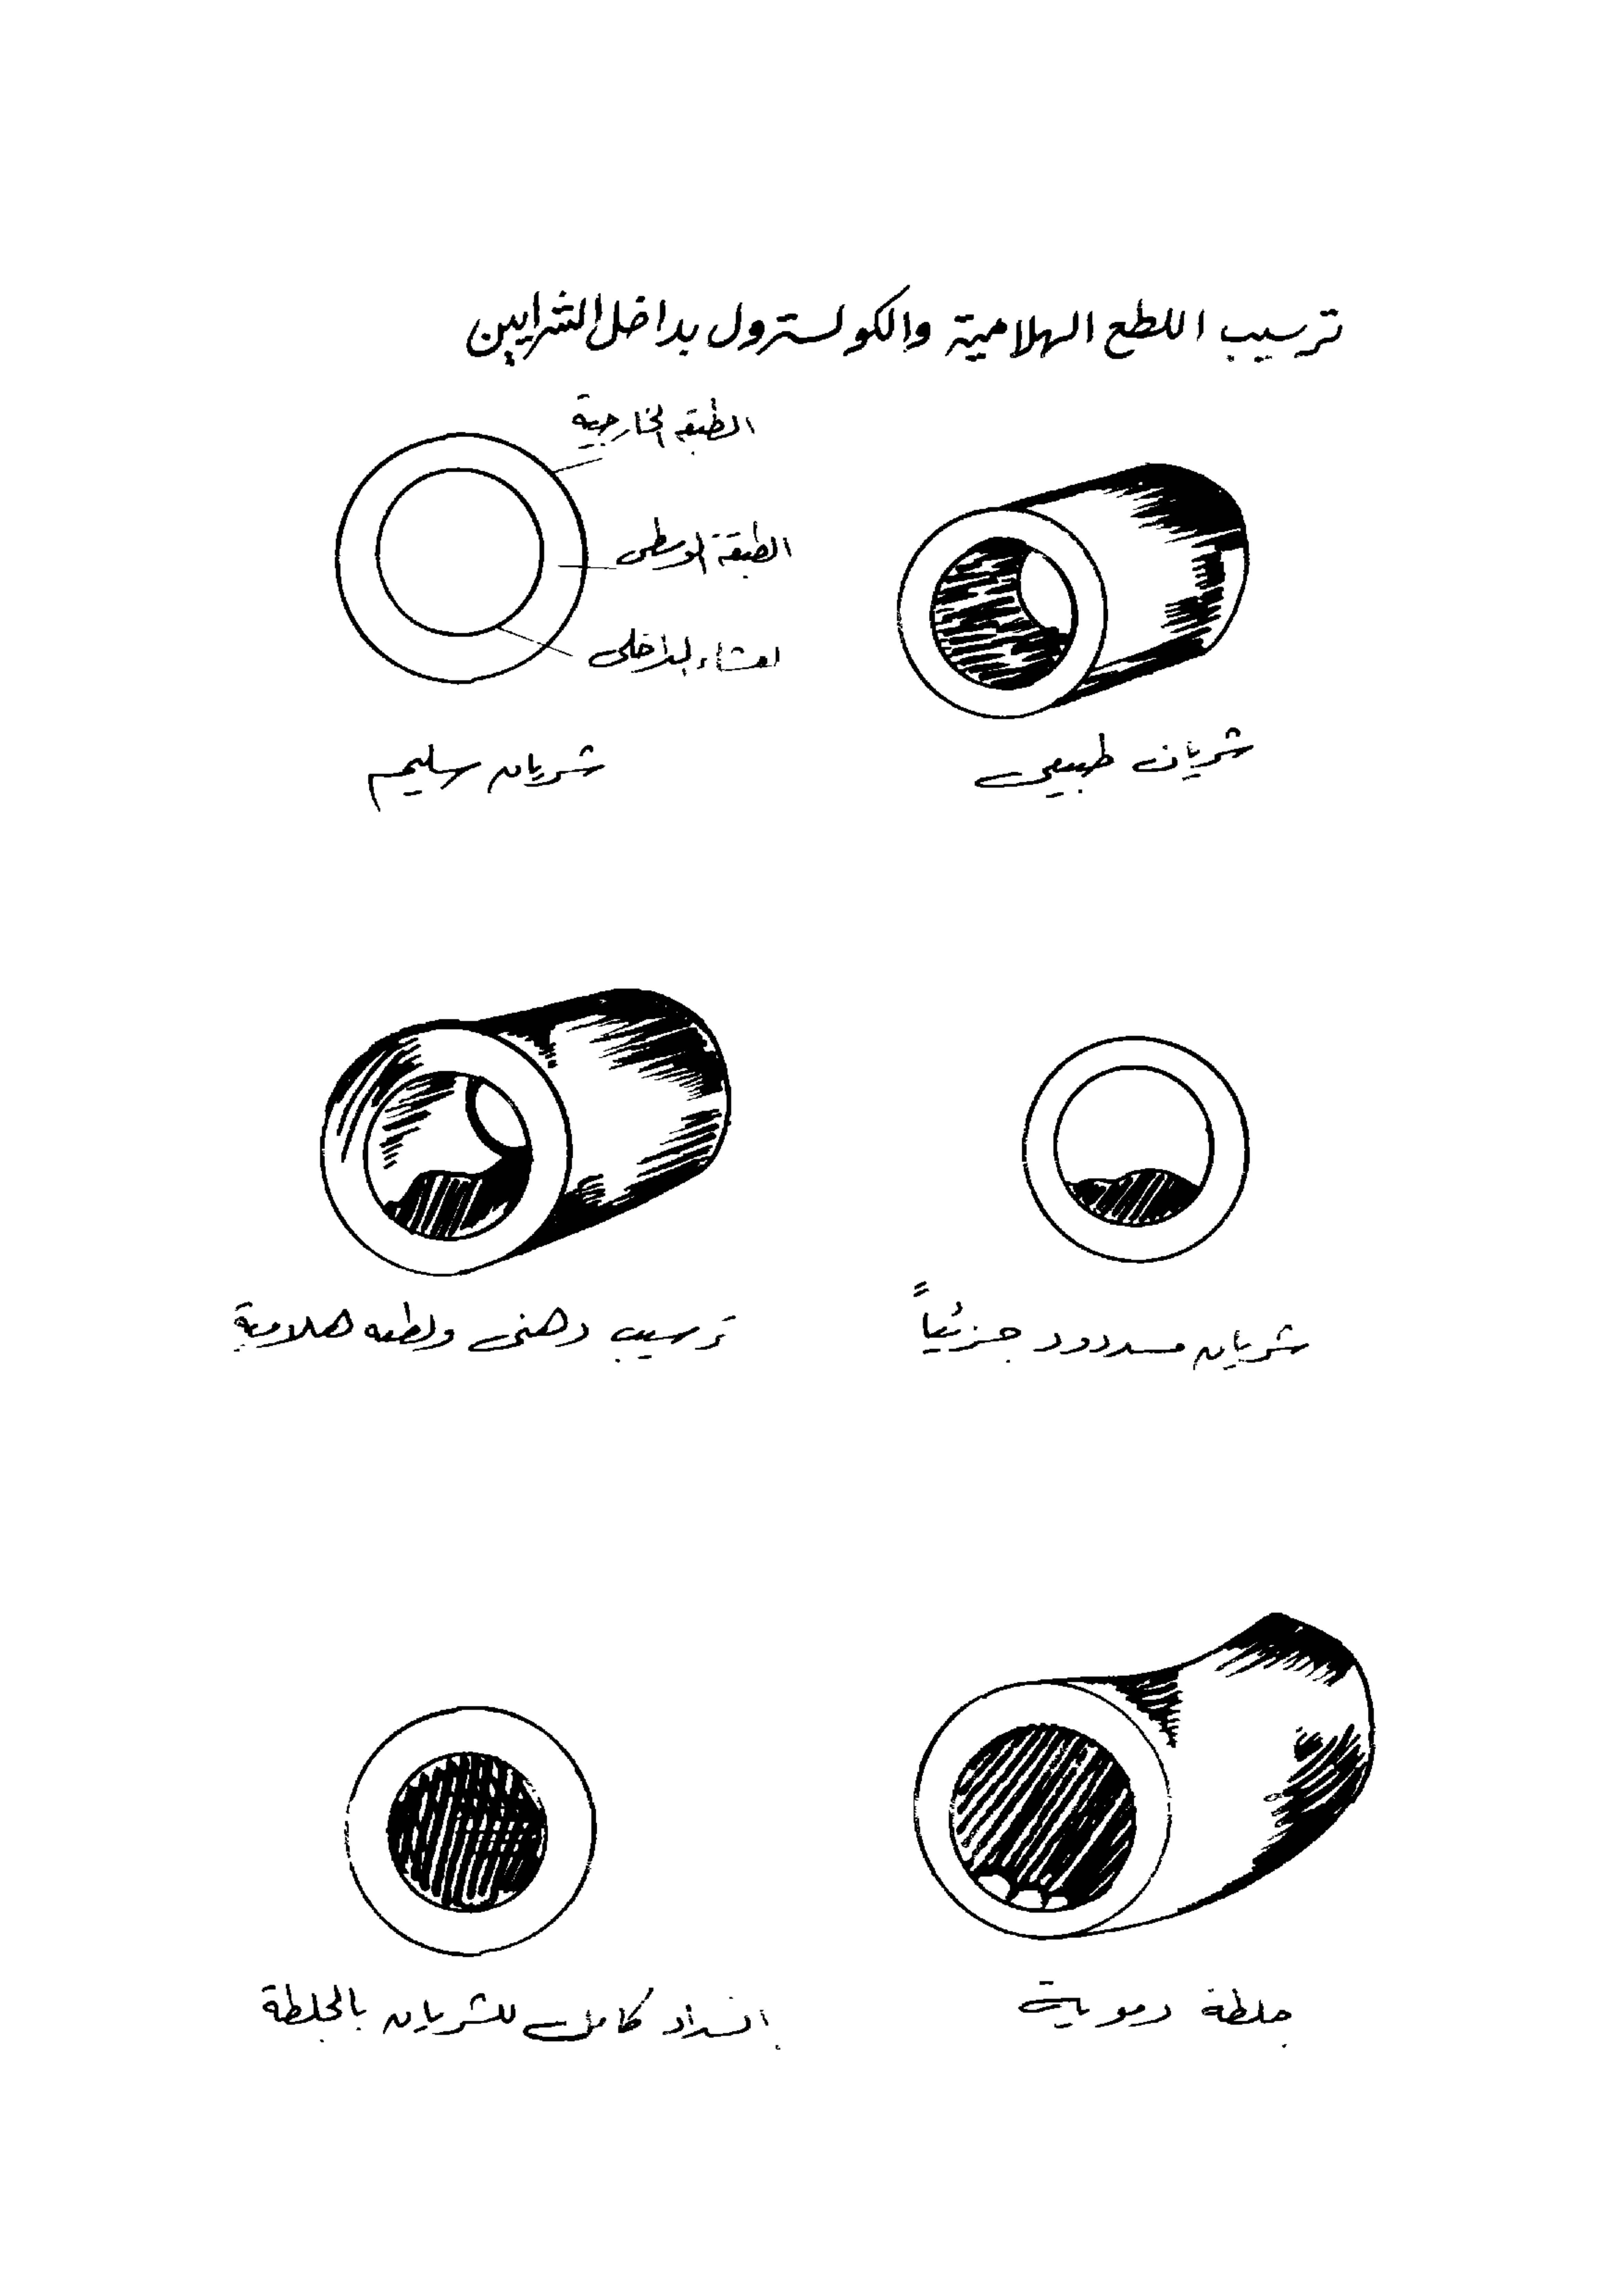 ترسيب اللطع الهلامية والكولسترول بداخل الشرايين
الطبقة الخارجية
الطبقة الوسطى
الغشاء الداخلى
شريان طبيعى
شريان سليم
شريان مسدود جزئياً
ترسيب دهنى ولطعه هلامية
جلطة دموية
انسداد كامل للشريان بالجلطة